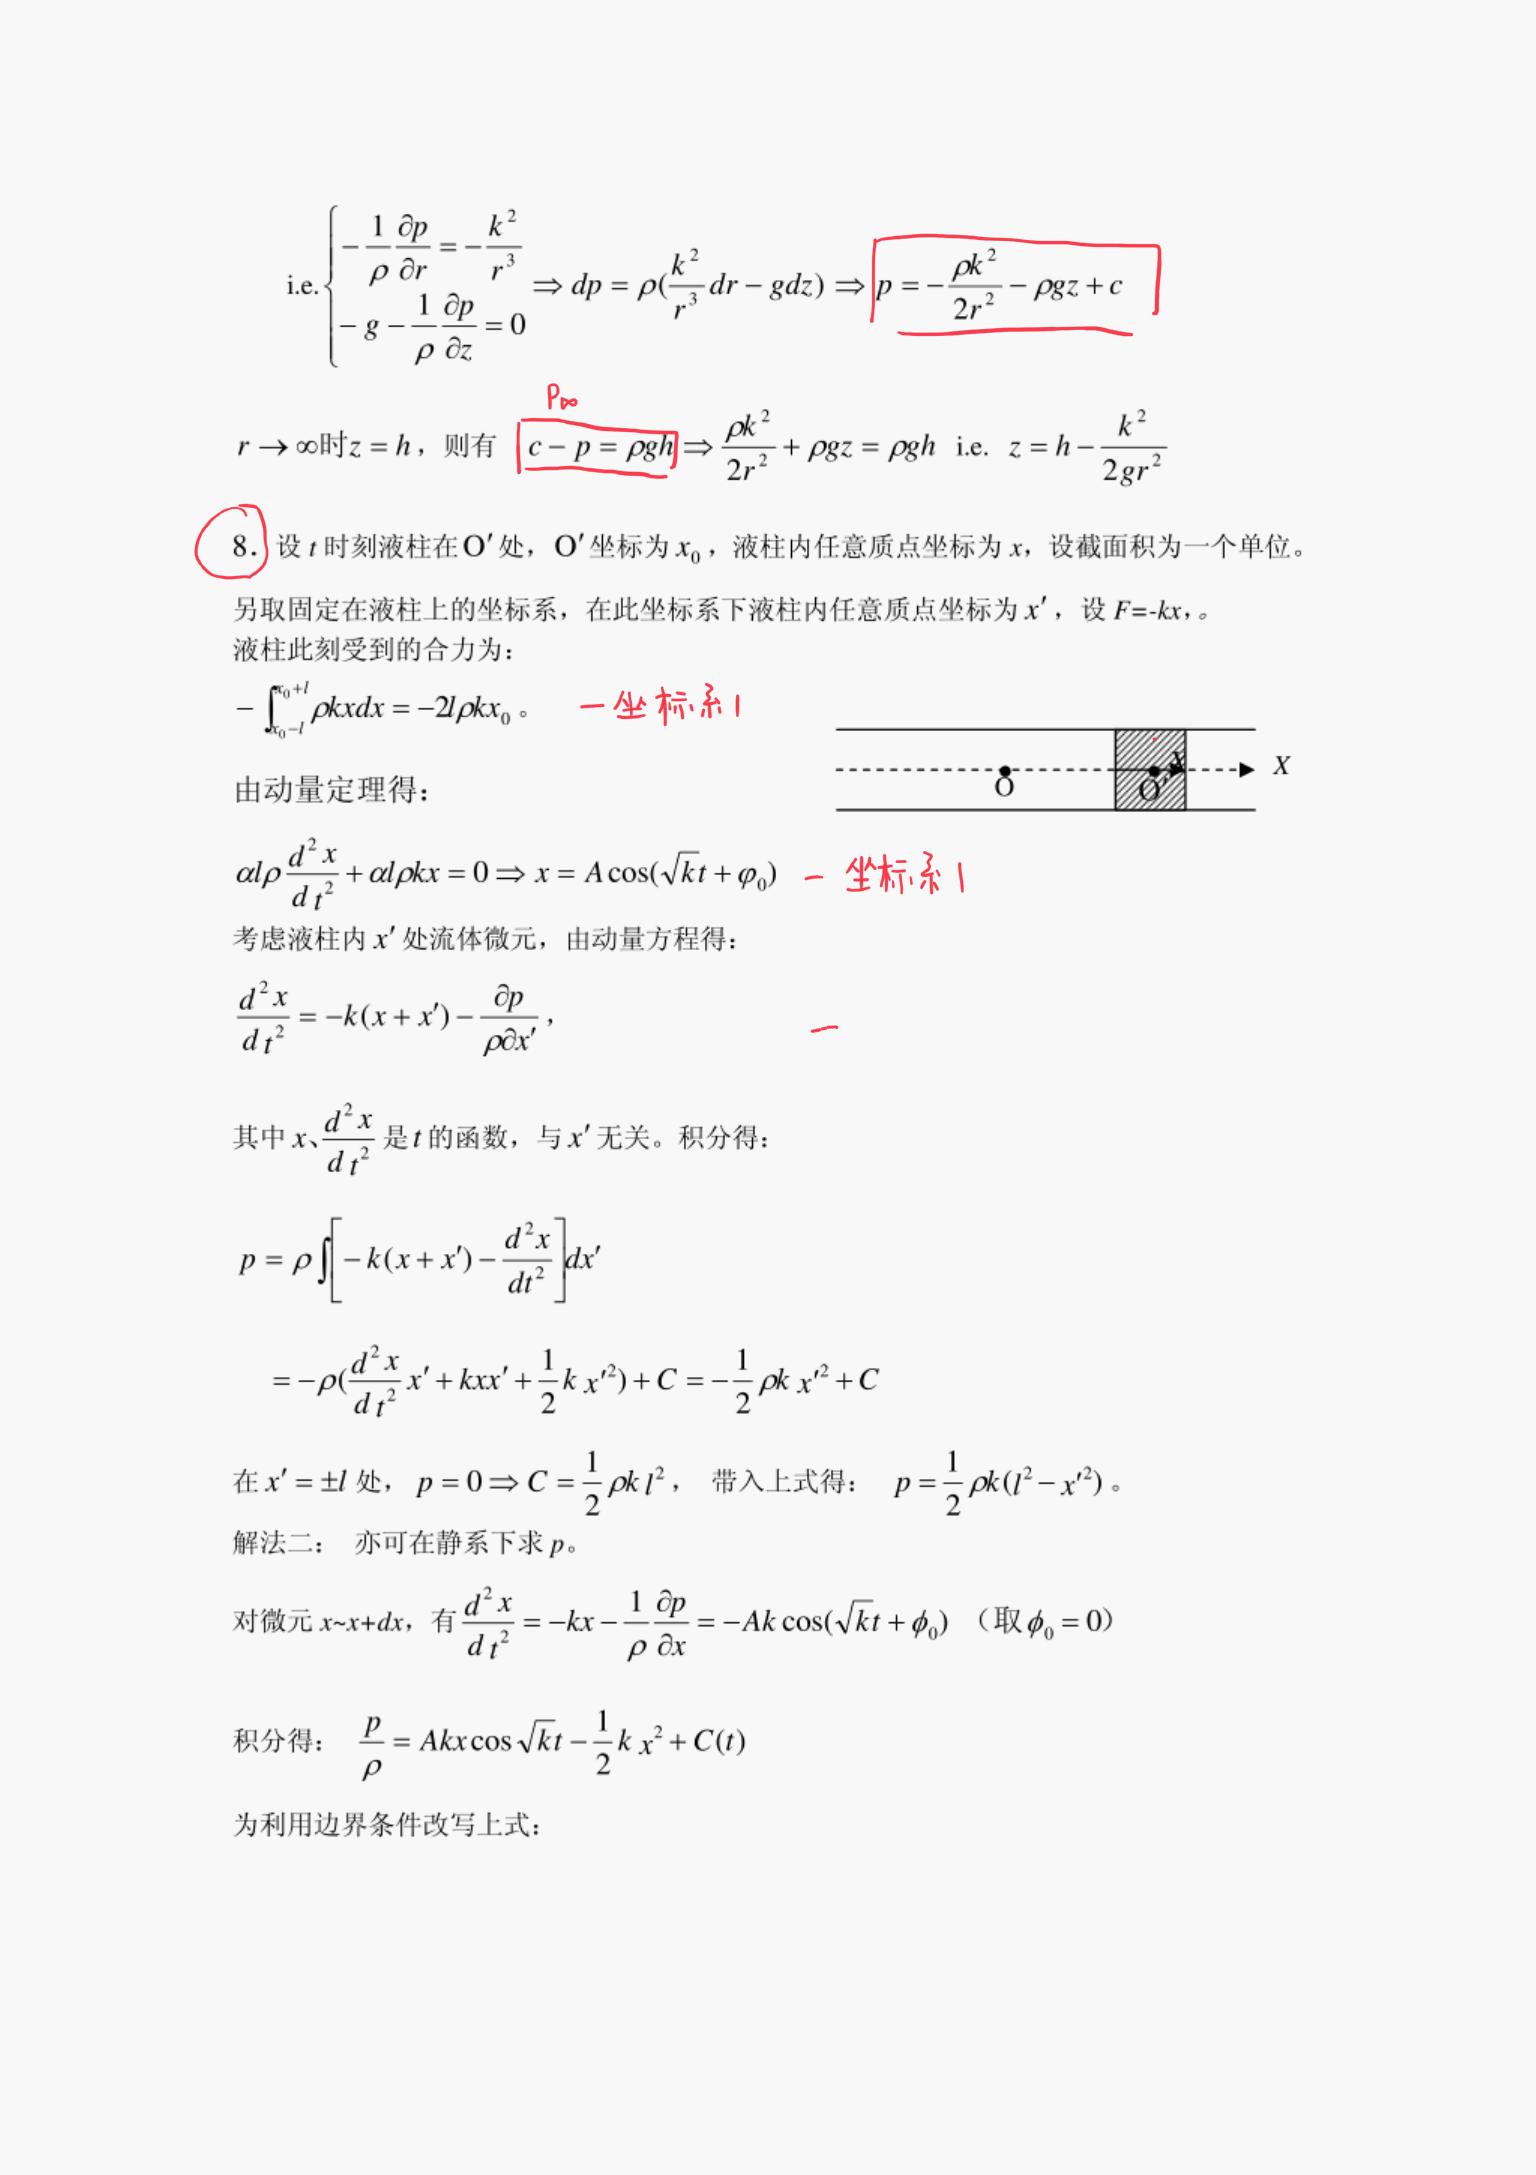 i.e. { -\frac{1}{ρ}\frac{∂p}{∂r} = -\frac{k^2}{r^3}, -g-\frac{1}{ρ}\frac{∂p}{∂z} = 0 ⇒ dp = ρ(\frac{k^2}{r^3}dr - gdz) ⇒ p = -\frac{ρk^2}{2r^2} - ρgz + c
P∞
r → ∞时z = h，则有 c - p = ρgh ⇒ \frac{ρk^2}{2r^2} + ρgz = ρgh i.e. z = h - \frac{k^2}{2gr^2}
8. 设 t 时刻液柱在O′处，O′坐标为 x_0，液柱内任意质点坐标为 x，设截面积为一个单位。
另取固定在液柱上的坐标系，在此坐标系下液柱内任意质点坐标为 x′，设 F=-kx，。
液柱此刻受到的合力为：
-∫_{x_0-l}^{x_0+l} ρkxdx = -2lρkx_0 。 — 坐标系1
X
x
O O′
由动量定理得：
αlρ\frac{d^2x}{dt^2} + αlρkx = 0 ⇒ x = A cos(\sqrt{k}t + φ_0) — 坐标系1
考虑液柱内 x′ 处流体微元，由动量方程得：
\frac{d^2x}{dt^2} = -k(x + x′) - \frac{∂p}{ρ∂x′}， —
其中 x、\frac{d^2x}{dt^2} 是 t 的函数，与 x′ 无关。积分得：
p = ρ∫[-k(x + x′) - \frac{d^2x}{dt^2}]dx′
= -ρ(\frac{d^2x}{dt^2}x′ + kxx′ + \frac{1}{2}k x′^2) + C = -\frac{1}{2}ρk x′^2 + C
在 x′ = ±l 处，p = 0 ⇒ C = \frac{1}{2}ρk l^2， 带入上式得： p = \frac{1}{2}ρk(l^2 - x′^2) 。
解法二： 亦可在静系下求 p。
对微元 x~x+dx，有 \frac{d^2x}{dt^2} = -kx - \frac{1}{ρ}\frac{∂p}{∂x} = -Ak cos(\sqrt{k}t + ϕ_0) （取 ϕ_0 = 0）
积分得： \frac{p}{ρ} = Akx cos\sqrt{k}t - \frac{1}{2}k x^2 + C(t)
为利用边界条件改写上式：